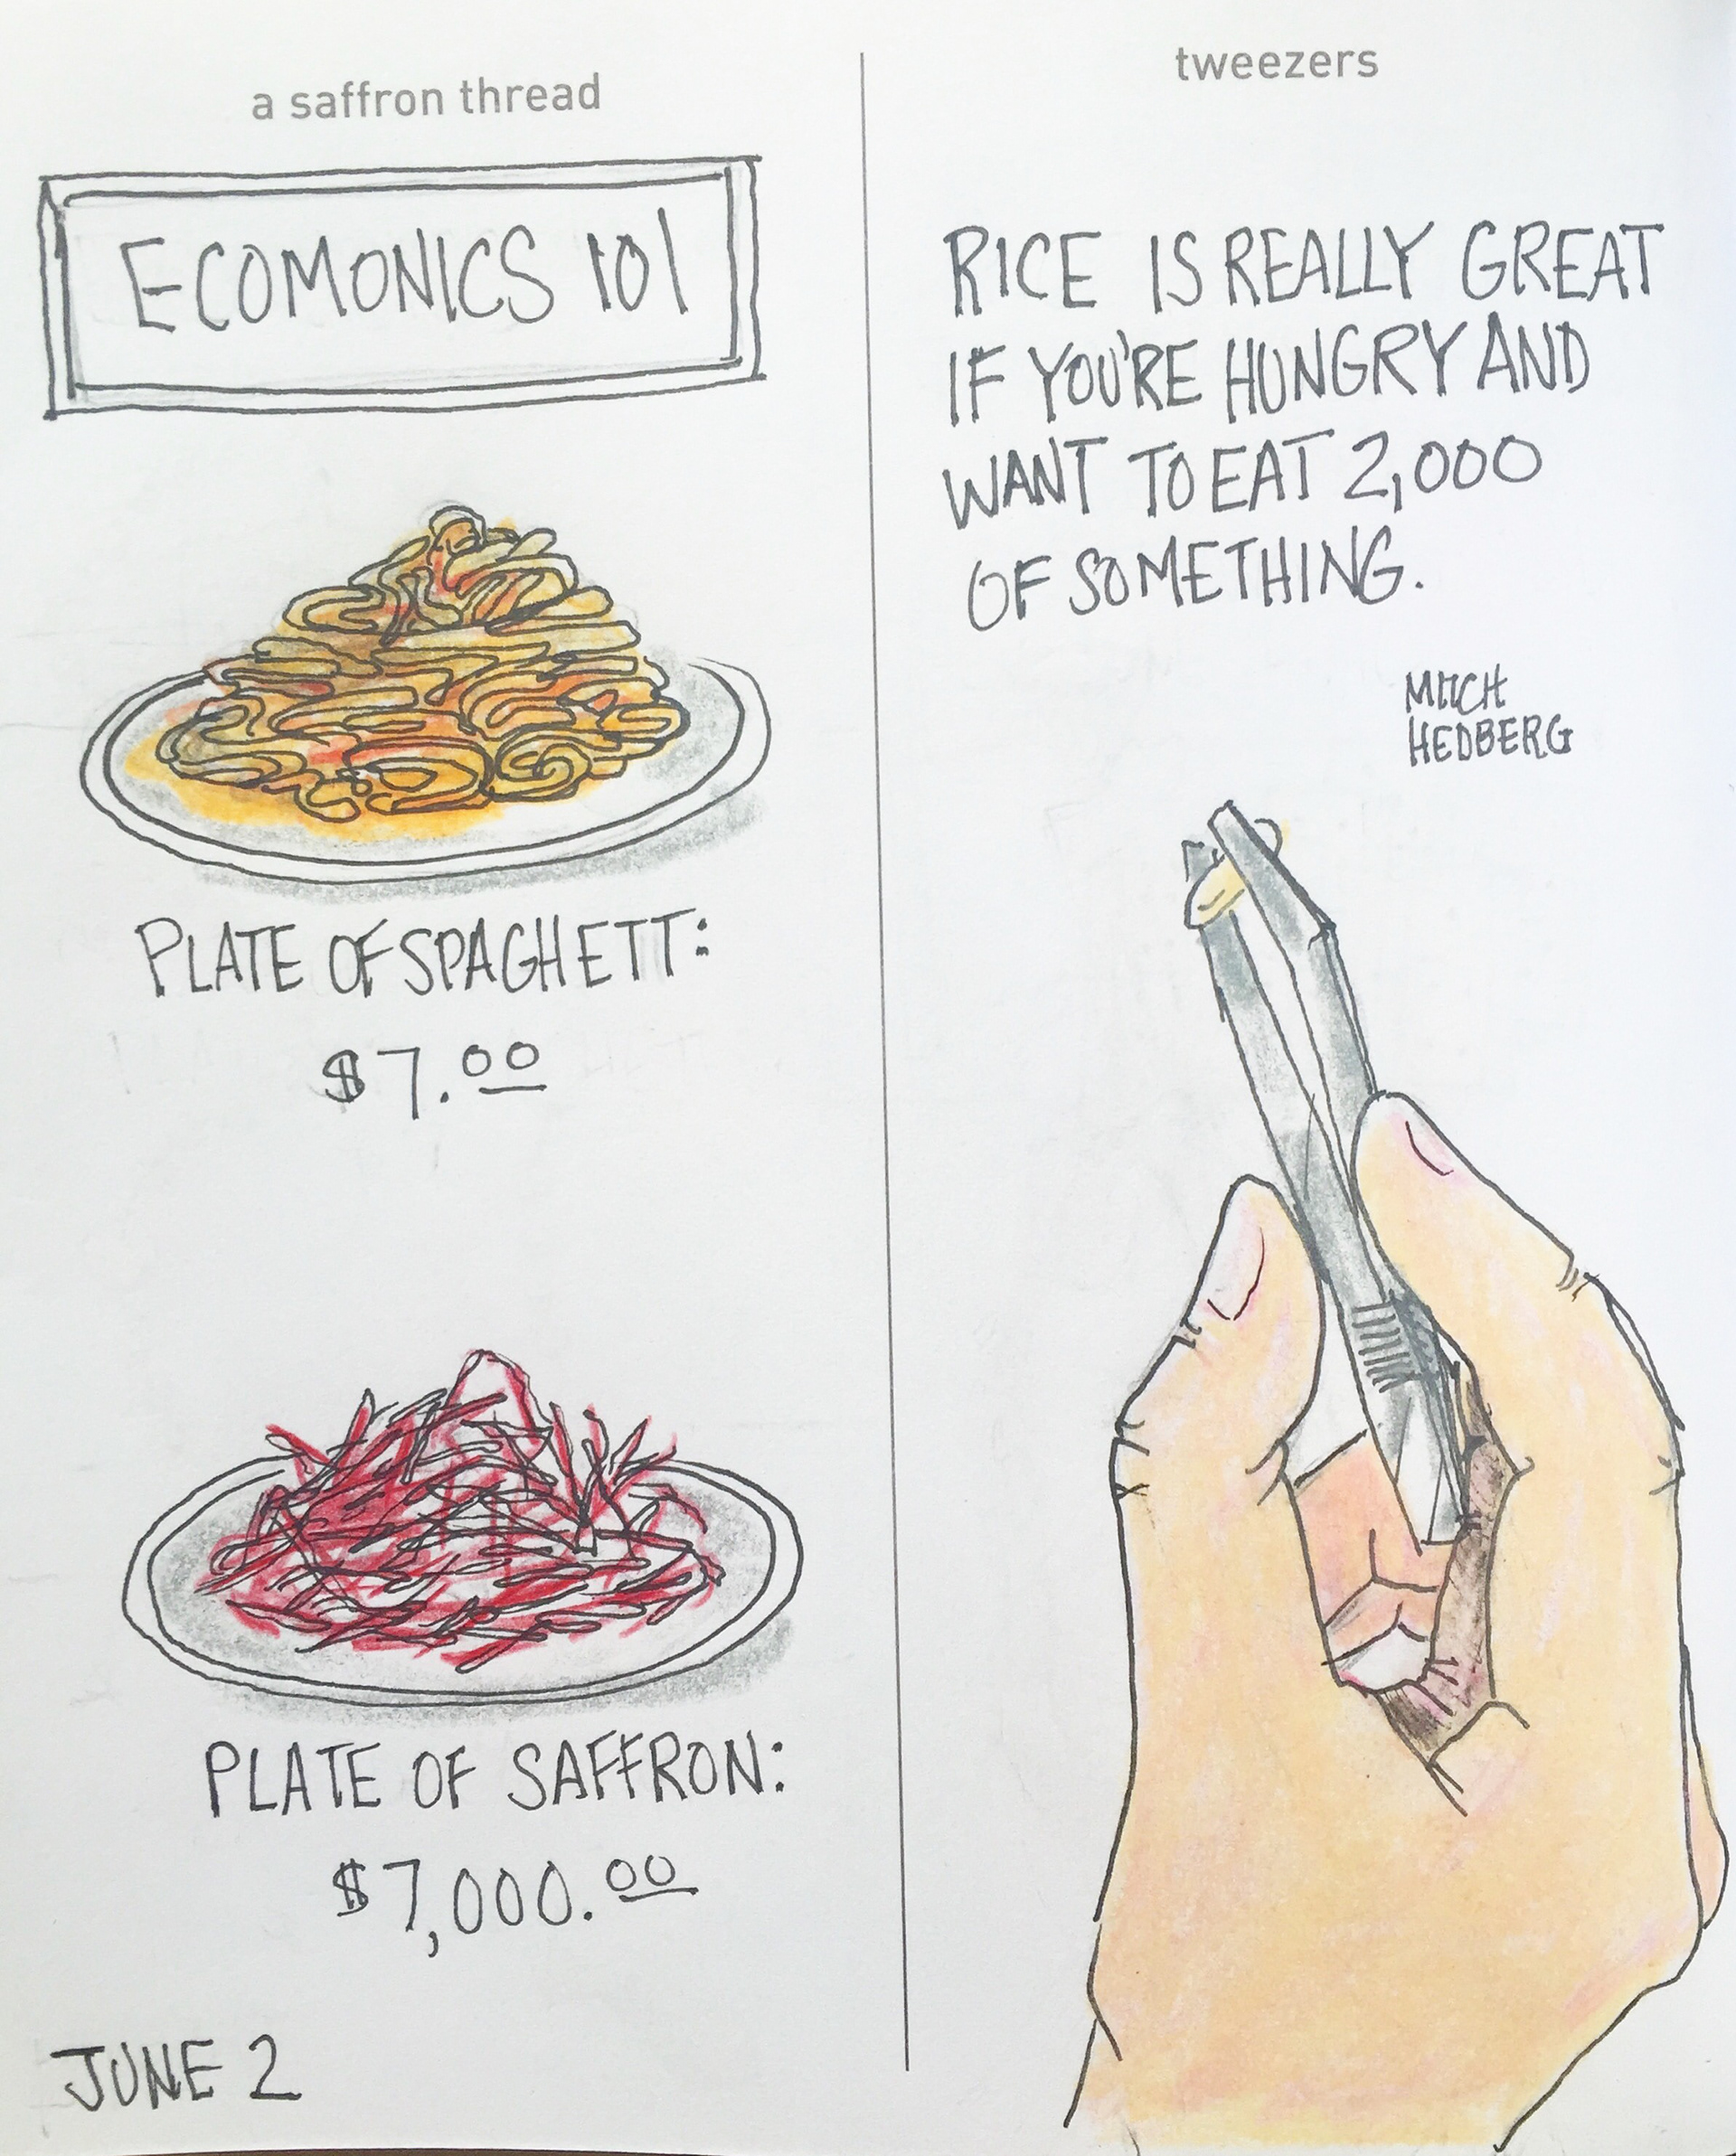 a saffron thread
ECOMONICS 101
PLATE OF SPAGHETT:
$7.00
PLATE OF SAFFRON:
$7,000.00
JUNE 2
tweezers
RICE IS REALLY GREAT
IF YOU'RE HUNGRY AND
WANT TO EAT 2,000
OF SOMETHING.
MITCH
HEDBERG